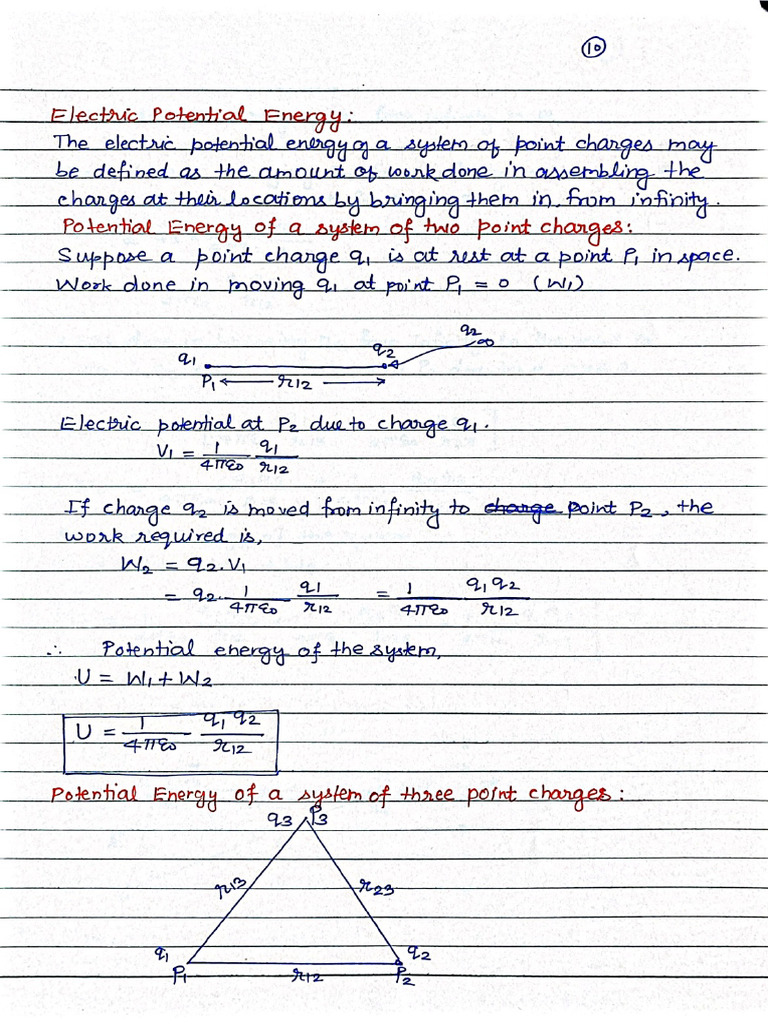 10
Electric Potential Energy:
The electric potential energy of a system of point charges may
be defined as the amount of work done in assembling the
charges at their locations by bringing them in, from infinity.
Potential Energy of a system of two point charges:
Suppose a point charge q₁ is at rest at a point P₁ in space.
Work done in moving q₁ at point P₁ = 0 (W₁)
q₂
q₁ q₂ ∞
P₁ ← r₁₂ →
Electric potential at P₂ due to charge q₁.
V₁ = 1/4πε₀ q₁/r₁₂
If charge q₂ is moved from infinity to charge point P₂, the
work required is,
W₂ = q₂.V₁
= q₂. 1/4πε₀ q₁/r₁₂ = 1/4πε₀ q₁q₂/r₁₂
∴ Potential energy of the system,
U = W₁ + W₂
U = 1/4πε₀ q₁q₂/r₁₂
Potential Energy of a system of three point charges:
q₃ P₃
r₁₃ r₂₃
q₁ q₂
P₁ r₁₂ P₂